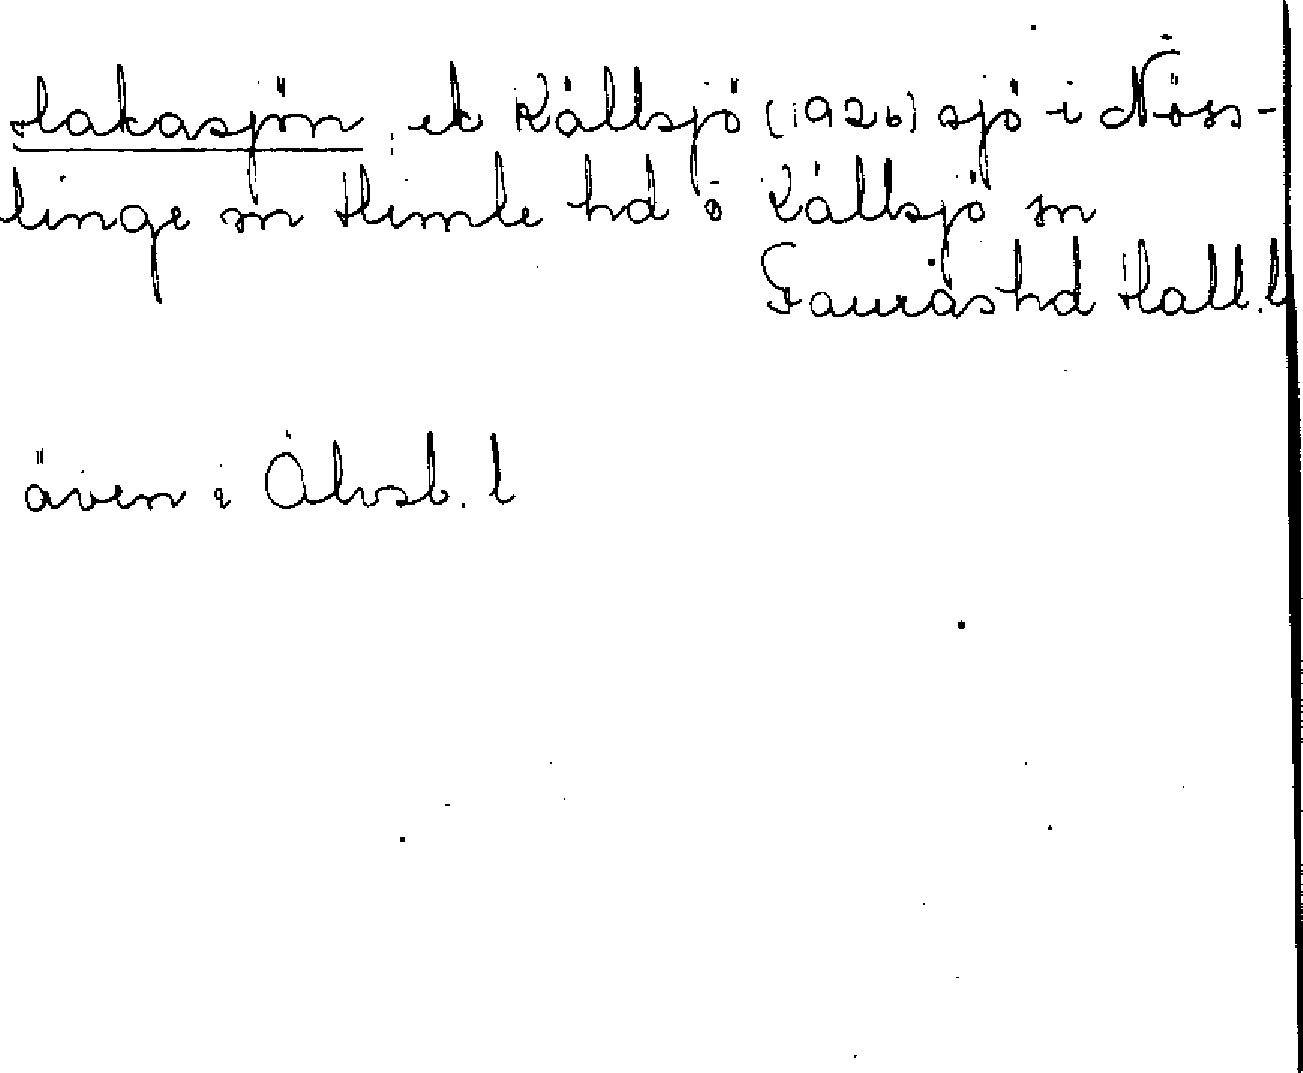 Hakasjön, ek Källsjö (1926) sjö i Nöss-
linge sn Himle hd o Källsjö sn
Faurås hd Hall. l
även i Älvsb. l